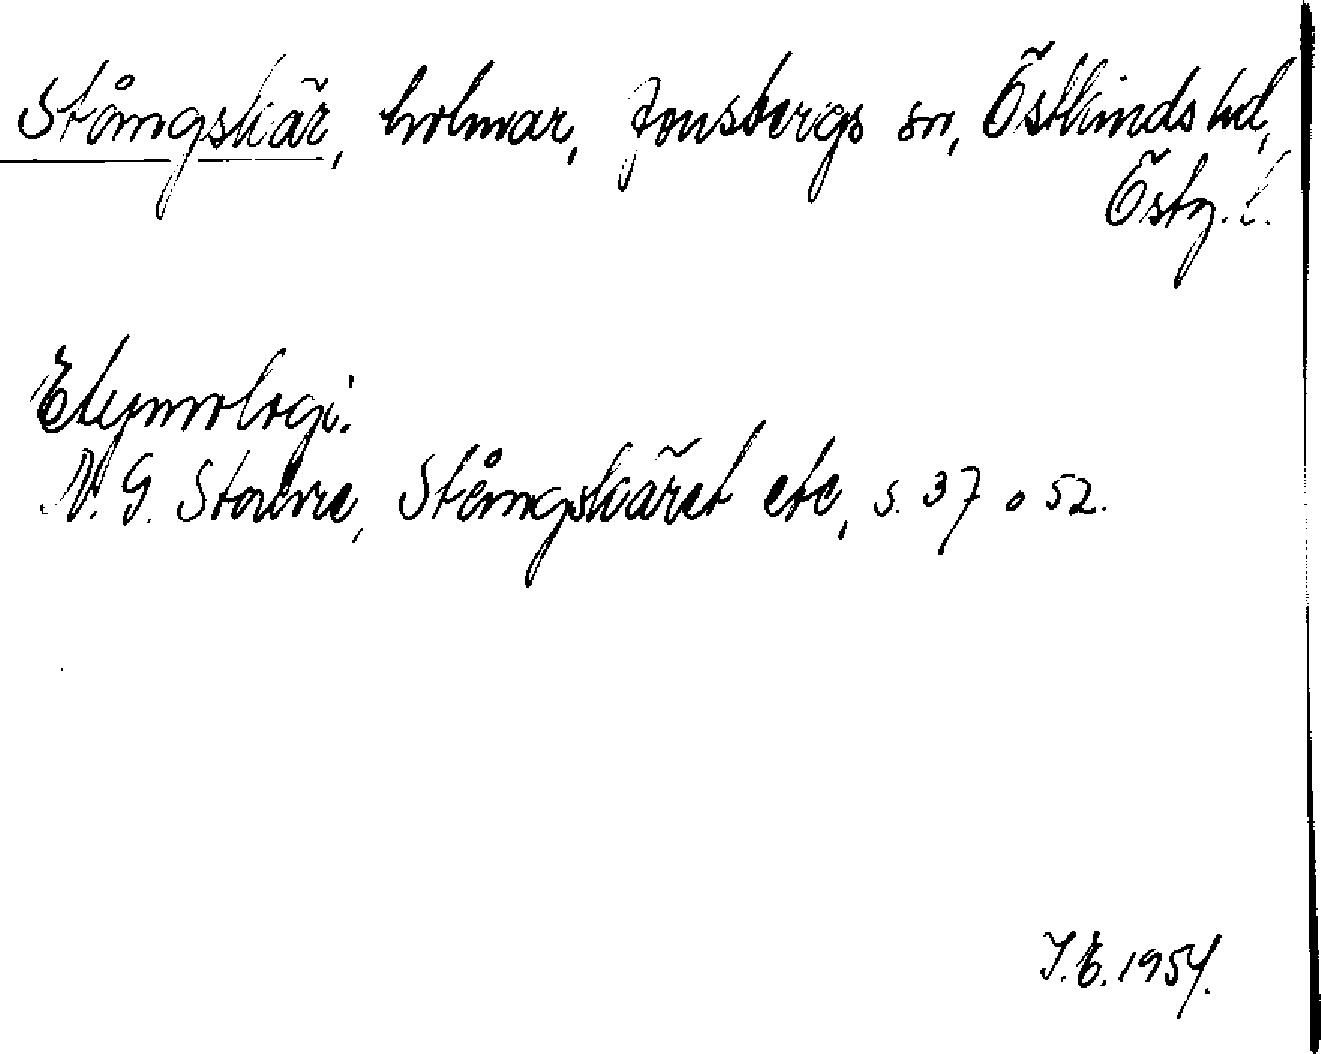 Stångskär, holmar, Jonsbergs sn, Östkinds hd,
Östg. l.
Etymologi:
N. G. Stahre, Stångskäret etc, s. 37 o 52.
I. E. 1954.